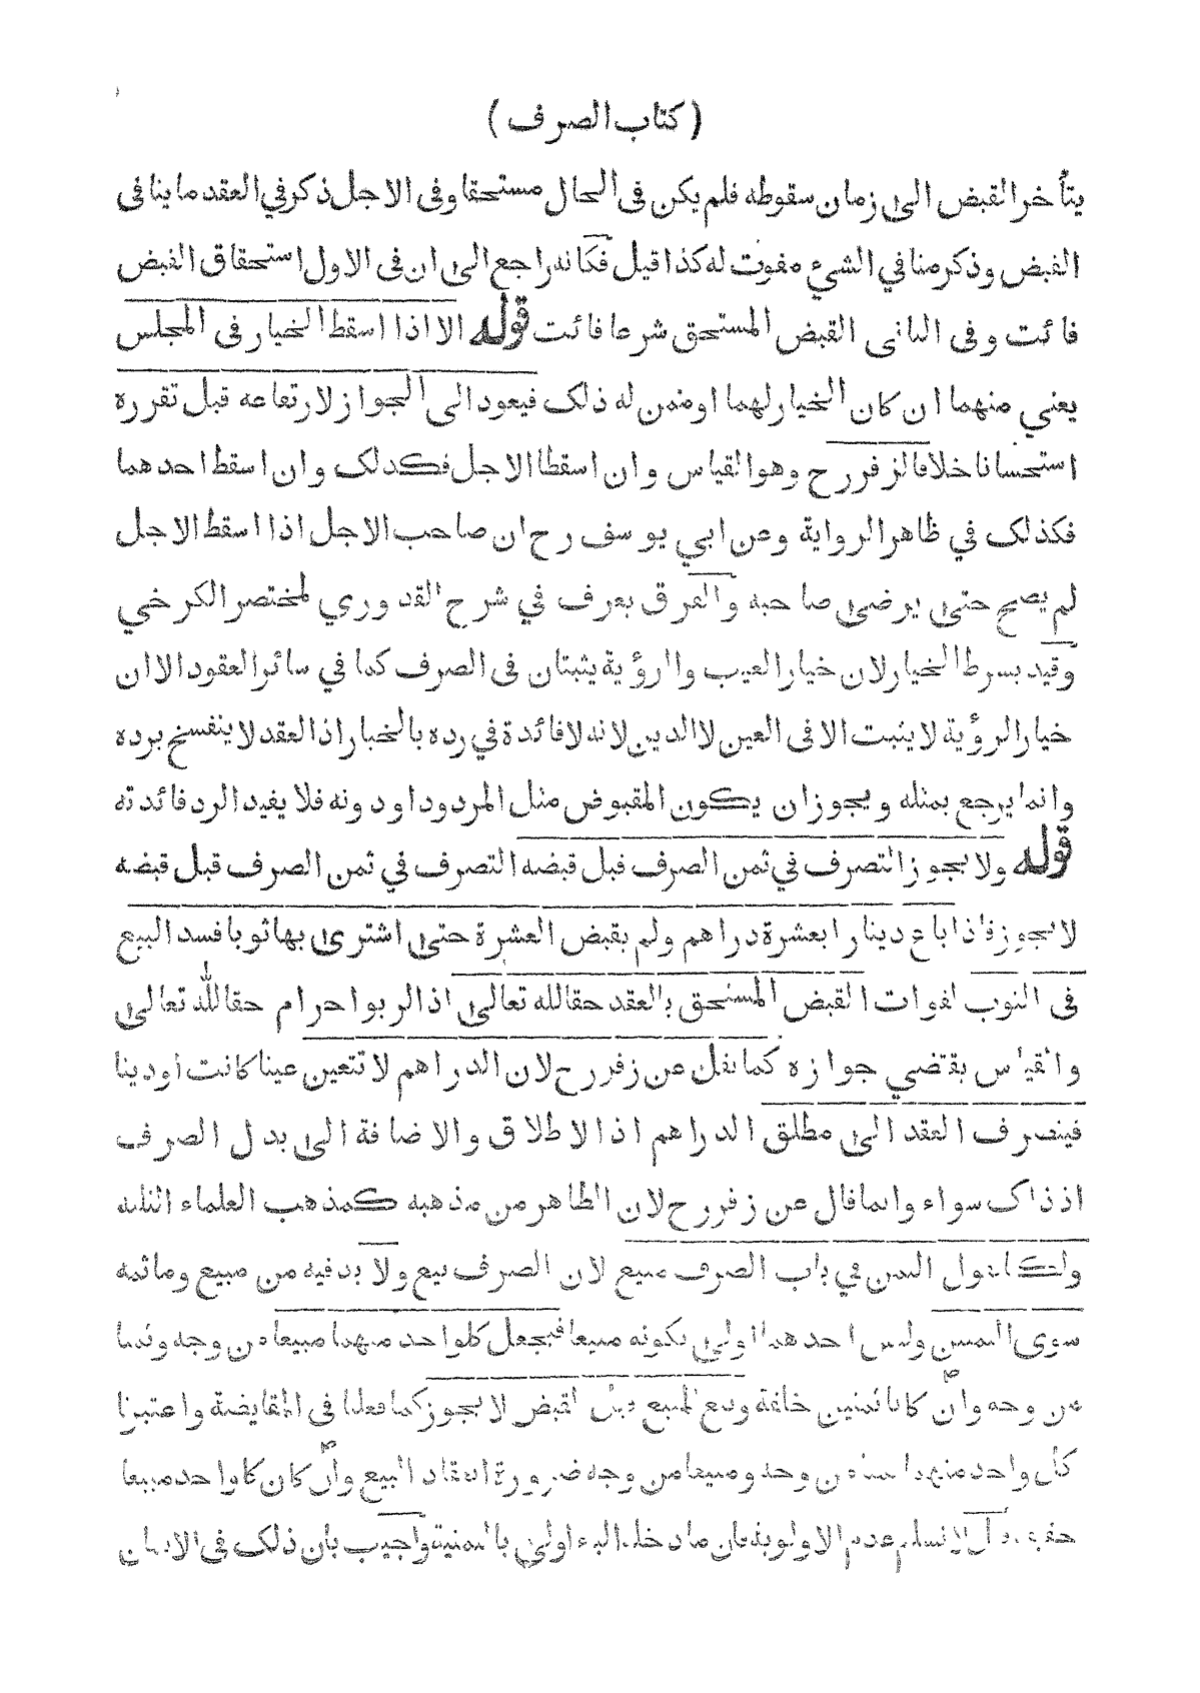 ( كتاب الصرف )
يتأخر القبض الى زمان سقوطه فلم يكن فى الحال مستحقا وفى الاجل ذكر في العقد ما ينافى
القبض وذكر منافي الشيء مفوت له كذا قيل فكانه راجع الى ان فى الاول استحقاق القبض
فائت وفى الثانى القبض المستحق شرعا فائت قوله الا اذا اسقط الخيار فى المجلس
يعني منهما ان كان الخيار لهما او ممن له ذلك فيعود الى الجواز لارتفاعه قبل تقرره
استحسانا خلافا لزفر رح وهو القياس وان اسقطا الاجل فكذلك وان اسقط احدهما
فكذلك في ظاهر الرواية وعن ابي يوسف رح ان صاحب الاجل اذا اسقط الاجل
لم يصح حتى يرضى صاحبه والفرق يعرف في شرح القدوري لمختصر الكرخي
وقيد بشرط الخيار لان خيار العيب والرؤية يثبتان فى الصرف كما في سائر العقود الا ان
خيار الرؤية لا يثبت الا فى العين لا الدين لانه لا فائدة في رده بالخيار اذ العقد لا ينفسخ برده
وانما يرجع بمثله ويجوز ان يكون المقبوض مثل المردود او دونه فلا يفيد الرد فائدته
قوله ولا يجوز التصرف في ثمن الصرف قبل قبضه التصرف في ثمن الصرف قبل قبضه
لا يجوز فاذا باع دينارا بعشرة دراهم ولم يقبض العشرة حتى اشترى بها ثوبا فسد البيع
فى الثوب لفوات القبض المستحق بالعقد حقا لله تعالى اذ الربوا حرام حقا لله تعالى
والقياس يقتضي جوازه كما نقل عن زفر رح لان الدراهم لا تتعين عينا كانت او دينا
فينصرف العقد الى مطلق الدراهم اذ الاطلاق والاضافة الى بدل الصرف
اذ ذاك سواء وانما قال عن زفر رح لان الظاهر من مذهبه كمذهب العلماء الثلثه
ولكنا نقول الثمن في باب الصرف مبيع لان الصرف بيع ولا بد فيه من مبيع وما ثمه
سوى الثمنين وليس احدهما اولى بكونه مبيعا فيجعل كل واحد منهما مبيعا من وجه وثمنا
من وجه وان كانا ثمنين خلقة وبيع المبيع قبل القبض لا يجوز كما فعلنا فى المقايضة واعتبرنا
كل واحد منهما ثمنا من وجه ومبيعا من وجه ضرورة انعقاد البيع وان كان كل واحد مبيعا
حقيقة لا نسلم عدم الاولوية فان ما دخله الباء اولى بالثمنية واجيب بان ذلك فى الاثمان